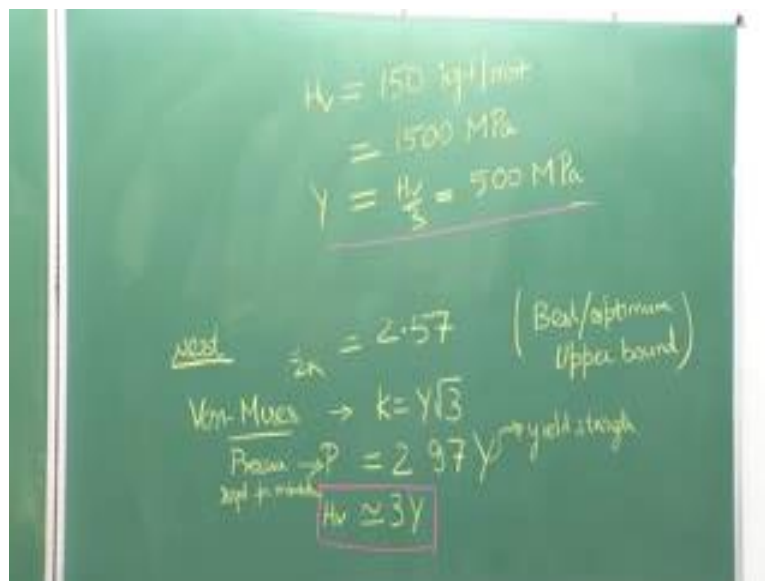 Hv = 150 kgf/mm²
= 1500 MPa
Y = Hv/3 = 500 MPa
= 2.57 (Best/optimum
Upper bound)
Von-Mises → k = Y√3
→ P = 2.97Y → yield strength
Hv ≃ 3Y